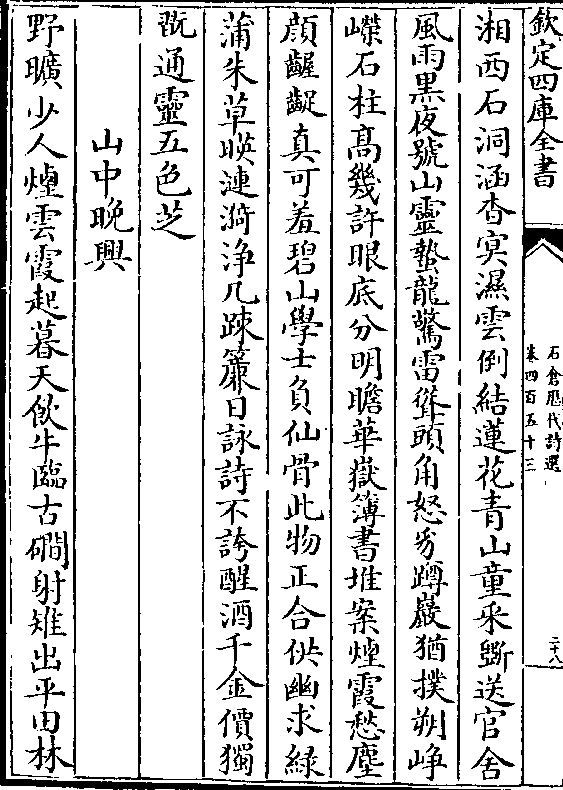 欽定四庫全書
石倉歷代詩選
卷四百五十三
二十八
湘西石洞涵杳冥濕雲倒結蓮花青山童采斵送官舍
風雨黒夜號山靈蟄龍驚雷聳頭角怒豸蹲巖猶撲朔崢
嶸石柱髙幾許眼底分明瞻華嶽簿書堆案煙霞愁塵
顔齷齪真可羞碧山學士負仙骨此物正合供幽求緑
蒲朱草暎漣漪浄几踈簾日詠詩不誇醒酒千金價獨
既通靈五色芝
山中晚興
野曠少人煙雲霞起暮天飲牛臨古磵射雉出平田林